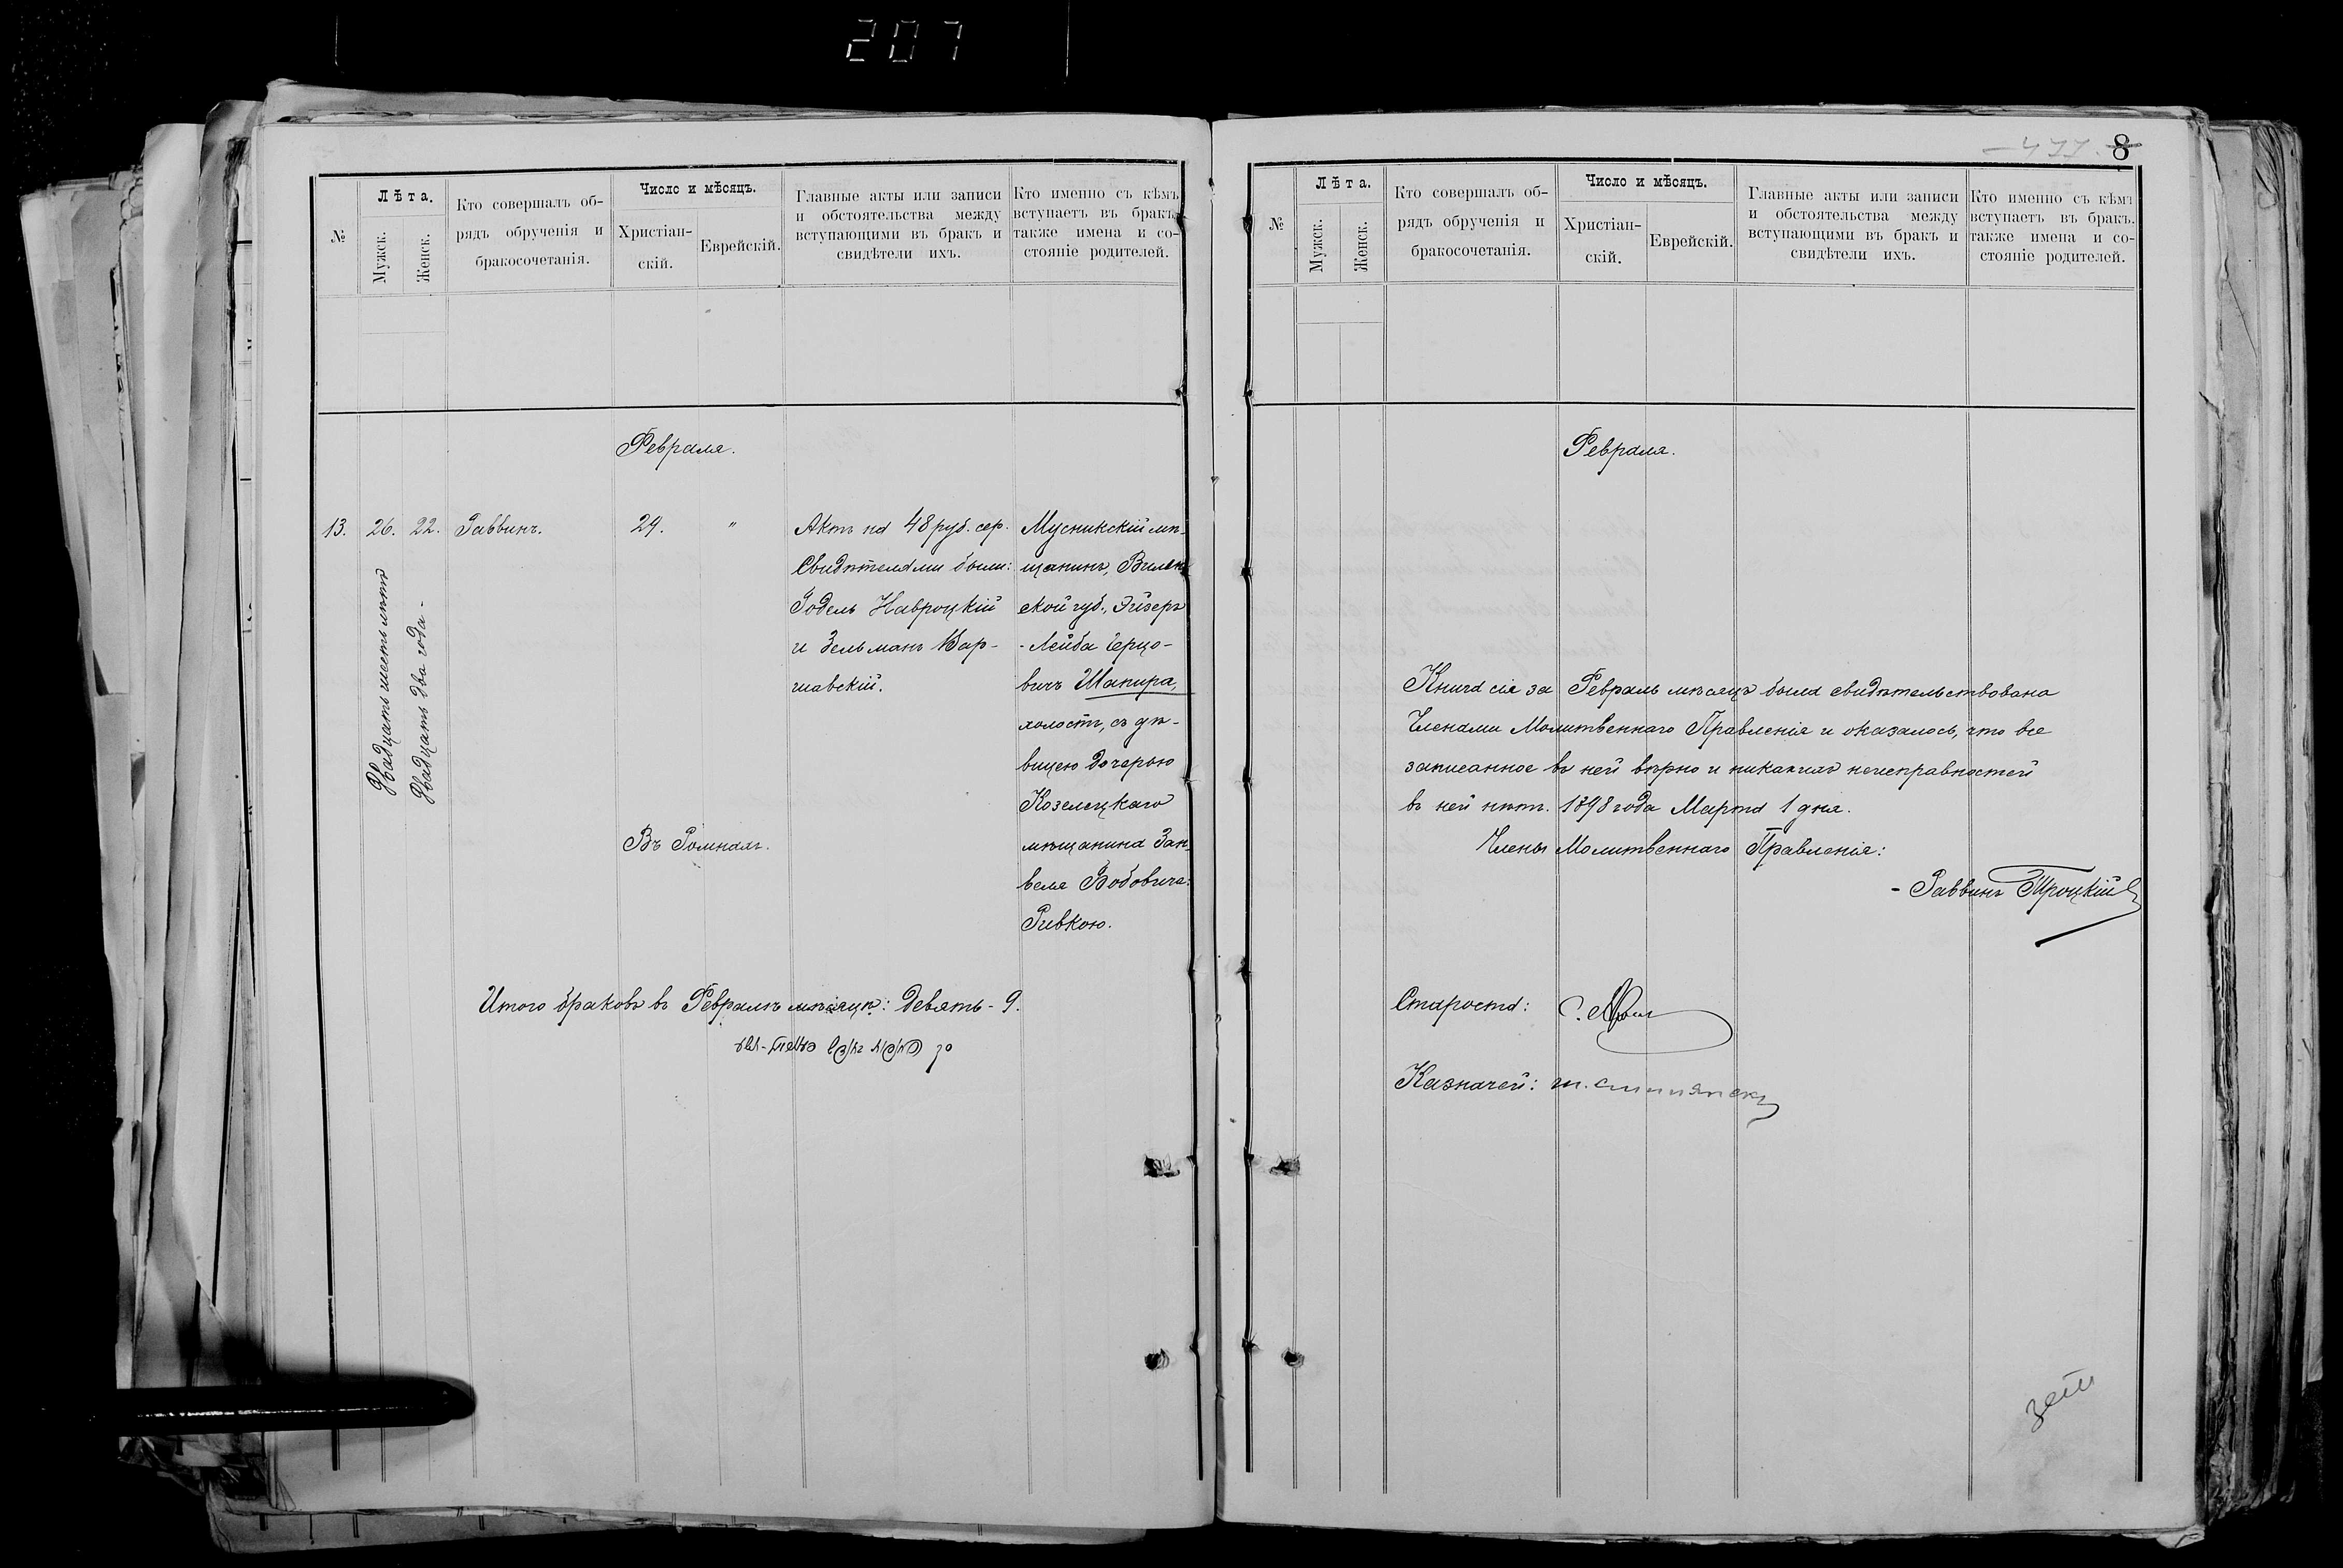 207
№
Лѣта.
Мужск.
Женск.
Кто совершалъ об-
рядъ обрученія и
бракосочетанія.
Число и мѣсяцъ.
Христіан-
скій.
Еврейскій.
Главные акты или записи
и обстоятельства между
вступающими въ бракъ и
свидѣтели ихъ.
Кто именно съ кѣмъ
вступаетъ въ бракъ,
также имена и со-
стояніе родителей.
Февраля.
13. 26. 22. Раввинъ. 24. "
Двадцать шесть лѣтъ
Двадцать два года -
Въ Ромнахъ.
Актъ на 48 руб. сер.
Свидѣтелями были:
Годель Навроцкій
и Зельманъ Вар-
шавскій.
Мусникскій мѣ-
щанинъ, Вилен
ской губ., Эйзеръ
- Лейба Герцо-
вичъ Шапира,
холостъ, съ дѣ-
вицею дочерью
Козелецкаго
мѣщанина Зан-
веля Вобовича:
Ривкою.
Итого браковъ въ Февралѣ мѣсяцѣ: девять - 9.
8
№
Лѣта.
Мужск.
Женск.
Кто совершалъ об-
рядъ обрученія и
бракосочетанія.
Число и мѣсяцъ.
Христіан-
скій.
Еврейскій.
Главные акты или записи
и обстоятельства между
вступающими въ бракъ и
свидѣтели ихъ.
Кто именно съ кѣмъ
вступаетъ въ бракъ.
также имена и со-
стояніе родителей.
Февраля.
Книга сія за Февраль мѣсяцъ была свидѣтельствована
Членами Молитвеннаго Правленія и оказалось, что все
записанное въ ней вѣрно и никакихъ неисправностей
въ ней нѣтъ. 1898 года Марта 1 дня.
Члены Молитвеннаго Правленія:
- Раввинъ Троцкій
Староста:
Казначей: